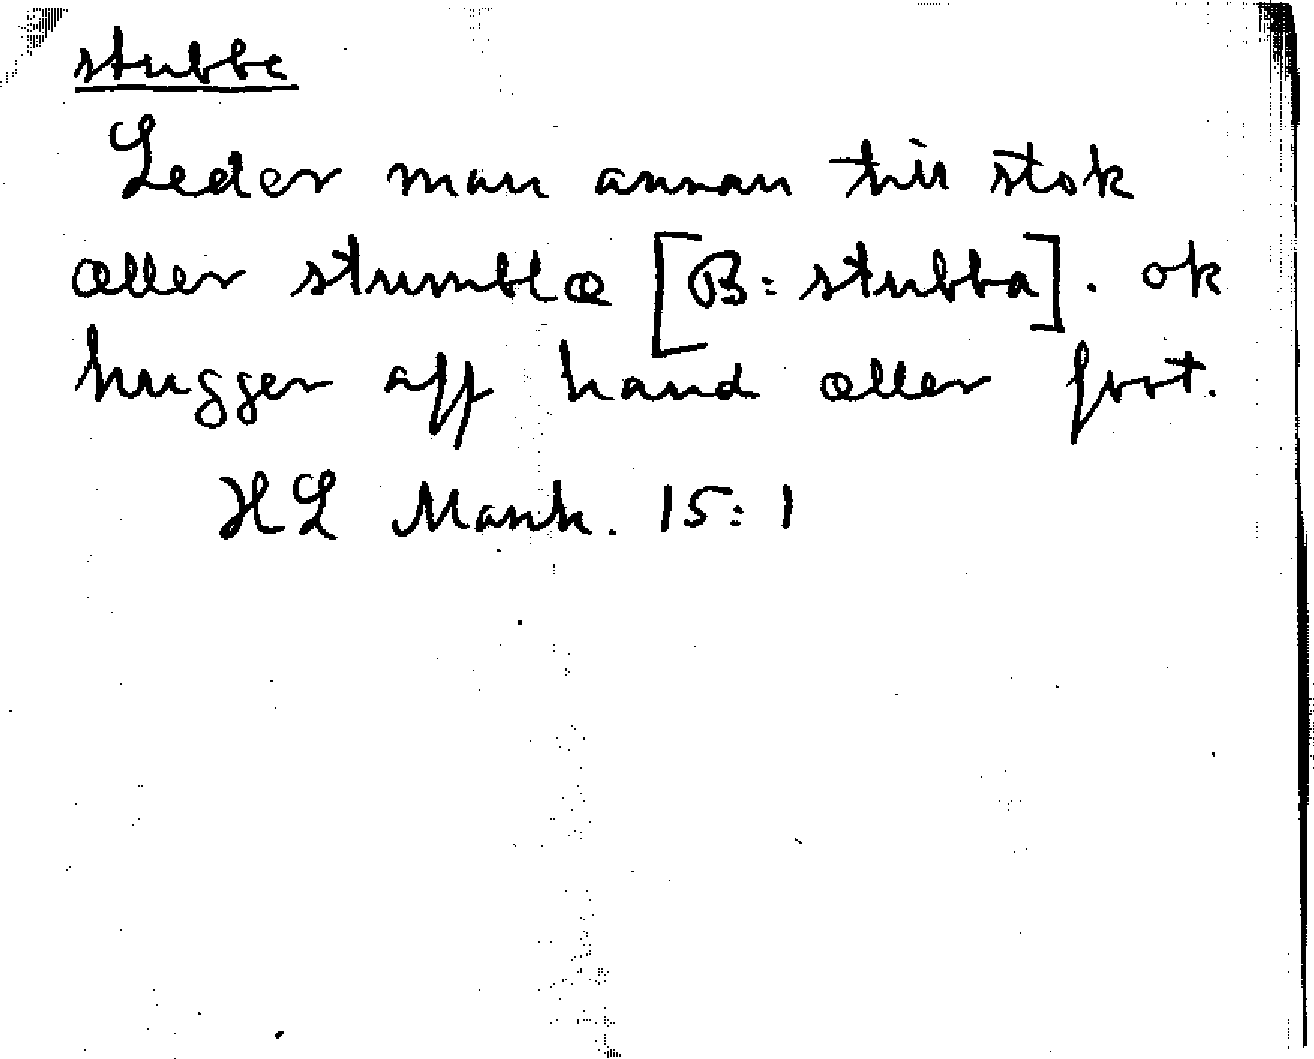 stubbe
Leder man annan till stok
æller stumblæ [B: stubba]. ok
hugger aff hand æller foot.
HL Mank. 15:1